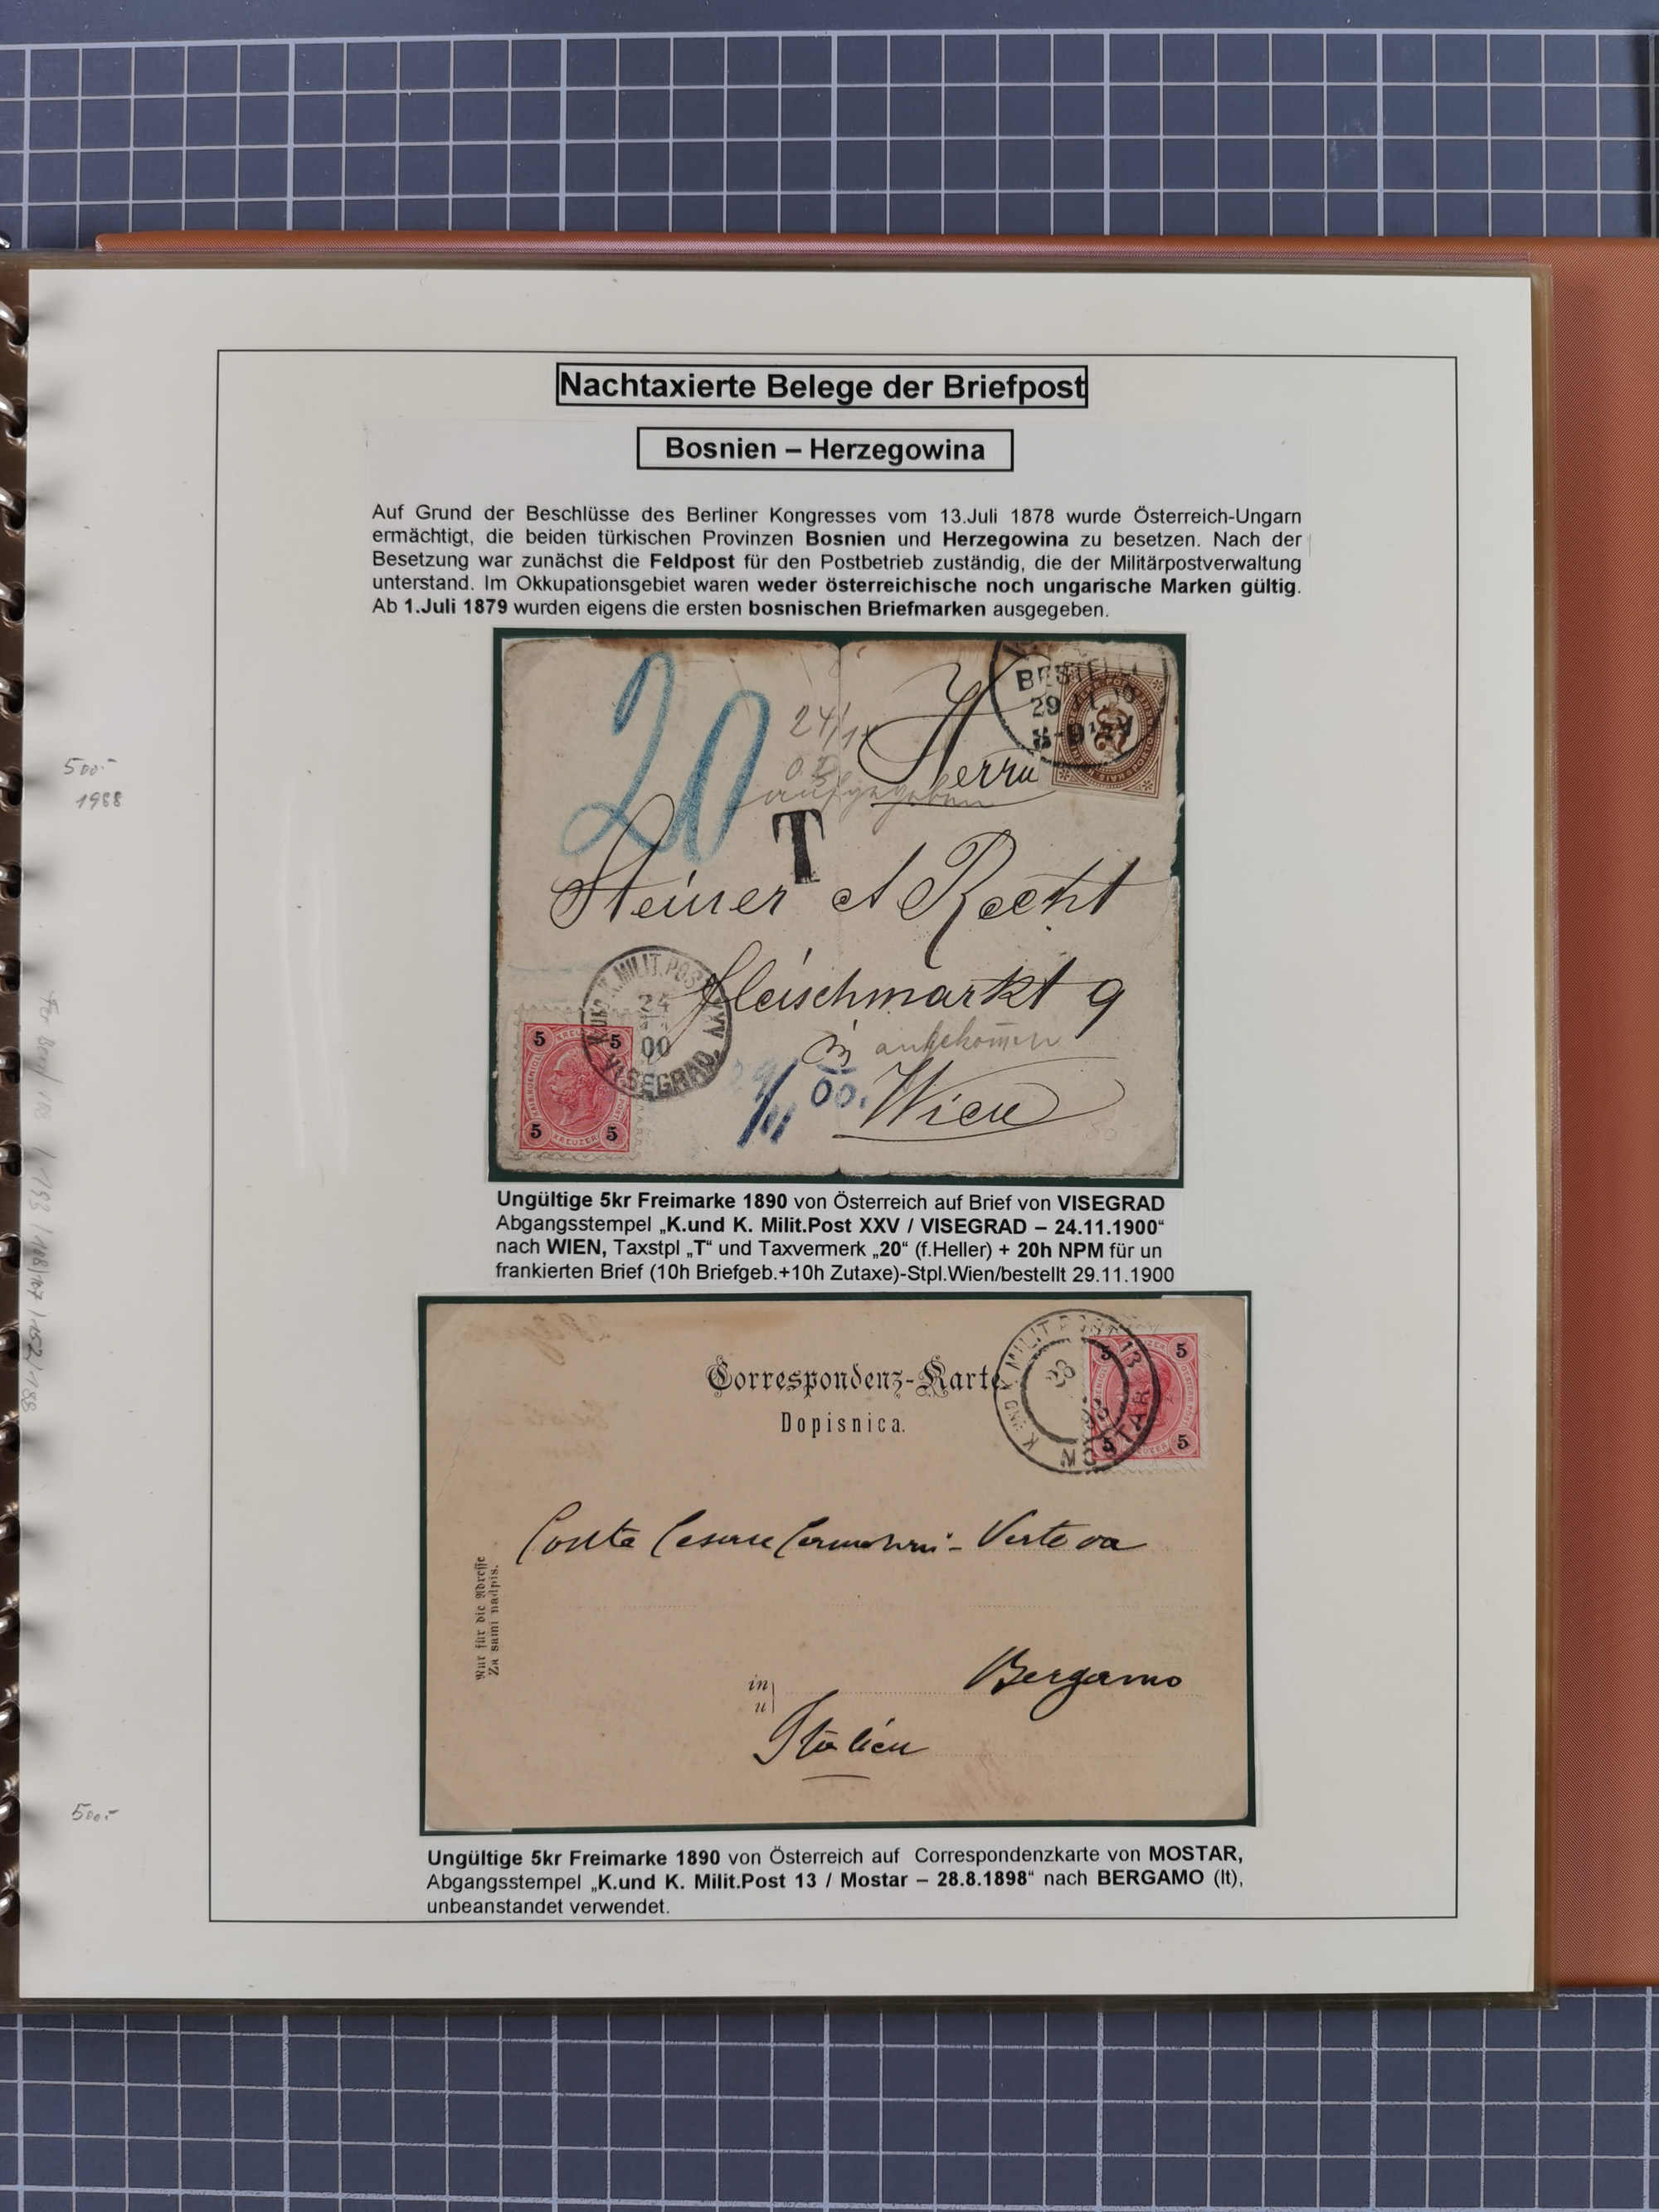 Nachtaxierte Belege der Briefpost
Bosnien – Herzegowina
Auf Grund der Beschlüsse des Berliner Kongresses vom 13.Juli 1878 wurde Österreich-Ungarn
ermächtigt, die beiden türkischen Provinzen Bosnien und Herzegowina zu besetzen. Nach der
Besetzung war zunächst die Feldpost für den Postbetrieb zuständig, die der Militärpostverwaltung
unterstand. Im Okkupationsgebiet waren weder österreichische noch ungarische Marken gültig.
Ab 1.Juli 1879 wurden eigens die ersten bosnischen Briefmarken ausgegeben.
20
24/11
aufgegeben
Herrn
BESTELLT
29
T
Steiner et Recht
Fleischmarkt 9
K. UND K. MILIT. POST XXV
24
00
VISEGRAD
5 KREUZER 5
5 KREUZER 5
in
angekommen
29/11 00.
Wien
500.-
1988
Ungültige 5kr Freimarke 1890 von Österreich auf Brief von VISEGRAD
Abgangsstempel „K.und K. Milit.Post XXV / VISEGRAD – 24.11.1900“
nach WIEN, Taxstpl „T“ und Taxvermerk „20“ (f.Heller) + 20h NPM für un
frankierten Brief (10h Briefgeb.+10h Zutaxe)-Stpl.Wien/bestellt 29.11.1900
Correspondenz-Karte
Dopisnica.
K. UND K. MILIT. POST 13
28
98
MOSTAR
5 5
5 5
Nur für die Adresse
Za sami nadpis.
Conte Cesare Camozzi-Vertova
in
u
Bergamo
Italien
500.-
Ungültige 5kr Freimarke 1890 von Österreich auf Correspondenzkarte von MOSTAR,
Abgangsstempel „K.und K. Milit.Post 13 / Mostar – 28.8.1898“ nach BERGAMO (It),
unbeanstandet verwendet.